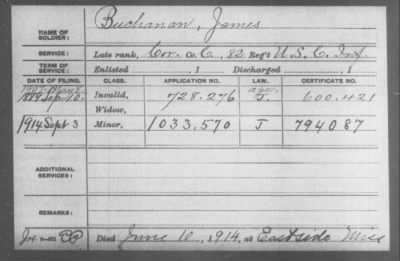 NAME OF SOLDIER: Buchanan, James
SERVICE: Late rank, Cor. Co. C, 82 Reg't U.S.C. Inf.
TERM OF SERVICE: Enlisted , 1 Discharged , 1
DATE OF FILING. CLASS. APPLICATION NO. LAW. CERTIFICATE NO.
1889 Sep. 10 Invalid, 728.276 J. 600.421
Widow,
1914 Sept 3 Minor, 1033.570 J 794087
ADDITIONAL SERVICES:
REMARKS:
Died June 10, 1914, at Eastside Miss